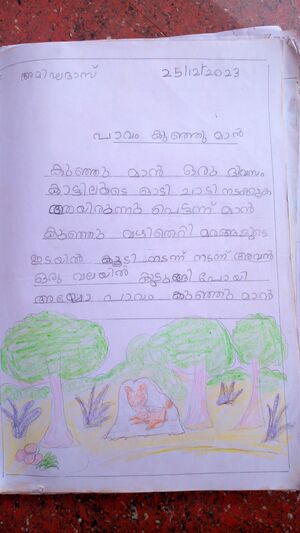 അമിഘദാസ് 25/12/2023
പാവം കുഞ്ഞു മാൻ
കുഞ്ഞു മാൻ ഒരു ദിവസം
കാട്ടിലൂടെ ഓടി ചാടി നടക്കുക
ആയിരുന്നു പെട്ടന്ന് മാൻ
കുഞ്ഞു വഴിതെറ്റി മരങ്ങളുടെ
ഇടയിൽ കൂടി നടന്ന് നടന്ന് അവൻ
ഒരു വലയിൽ കുടുങ്ങി പോയി
അയ്യോ പാവം കുഞ്ഞു മാൻ